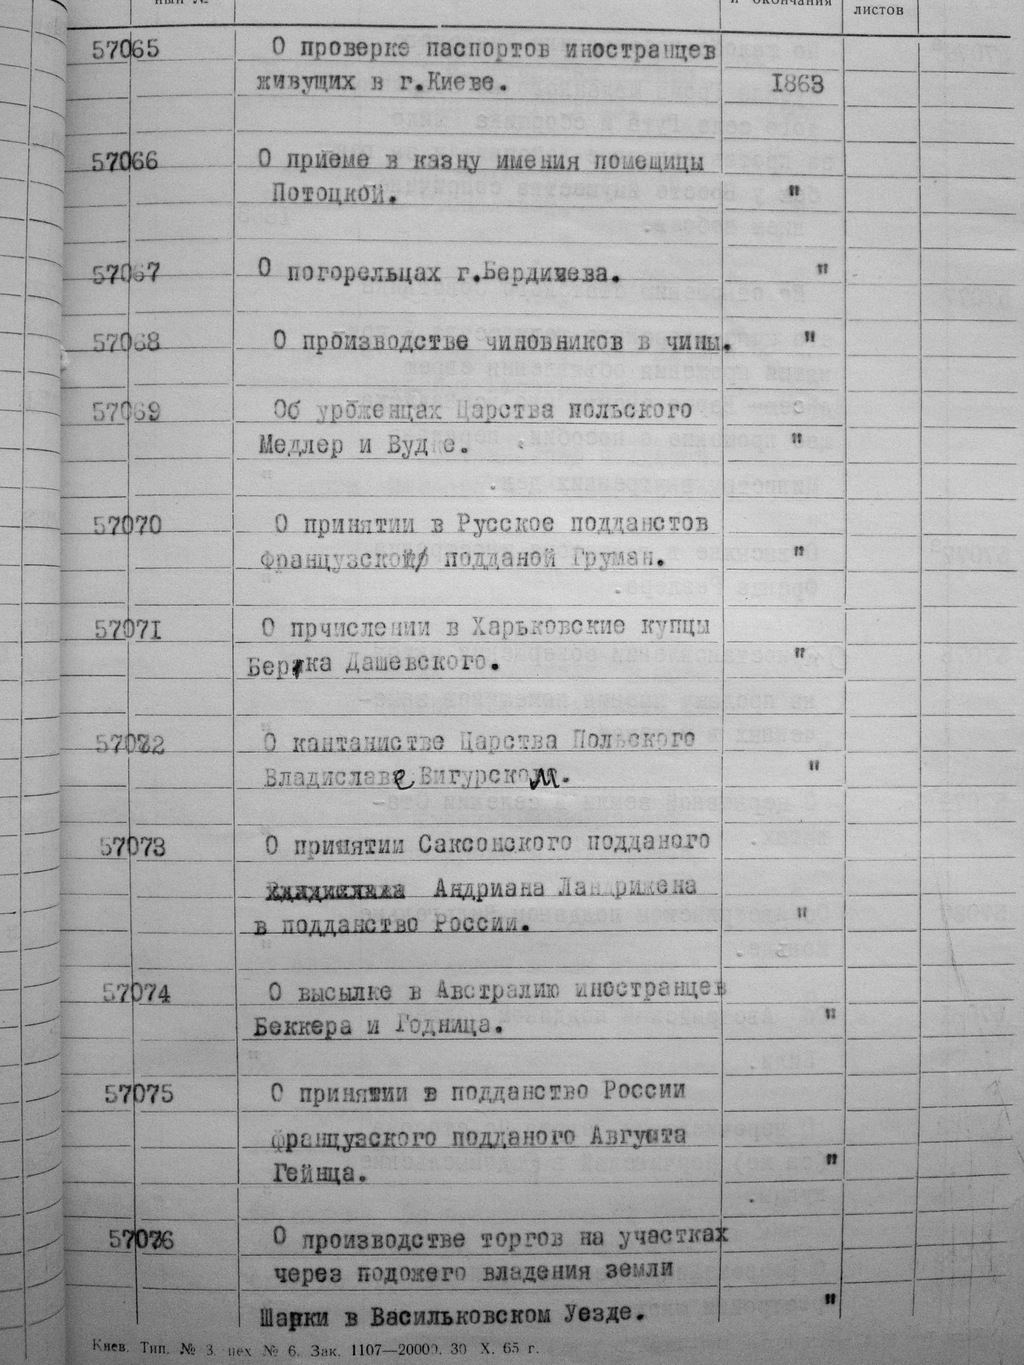 ный №
и окончания
листов
57065 О проверке паспортов иностранцев
живущих в г.Киеве. 1863
57066 О приеме в казну имения помещицы
Потоцкой. "
57067 О погорельцах г.Бердичева. "
57068 О производстве чиновников в чины. "
57069 Об уроженцах Царства польского
Медлер и Вудке. "
57070 О принятии в Русское подданстов
Французской подданой Груман. "
57071 О прчислении в Харьковские купцы
Берка Дашевского. "
57072 О кантанистве Царства Польского
Владиславе Вигурском. "
57073 О принятии Саксонского подданого
Андриана Ландрикена
в подданство России. "
57074 О высылке в Австралию иностранцев
Беккера и Годница. "
57075 О принятии в подданство России
французского подданого Августа
Гейнца. "
57076 О производстве торгов на участках
через подожего владения земли
Шарки в Васильковском Уезде. "
Киев. Тип. № 3. цех № 6. Зак. 1107—20000. 30 X. 65 г.